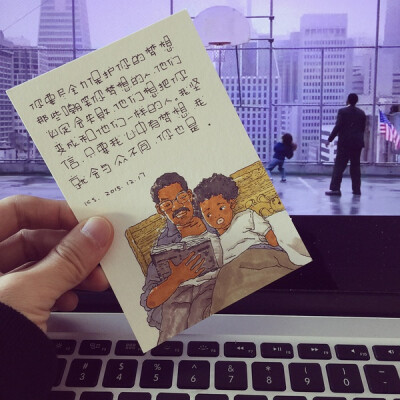 你要尽全力保护你的梦想
那些嘲笑你梦想的人 他们
必定会失败 他们想把你
变成和他们一样的人。我坚
信 只要我心中有梦想 我
就会与众不同 你也是.
KS. 2015.12.17
# $ % ^ & * ( )
3 4 5 6 7 8 9 0